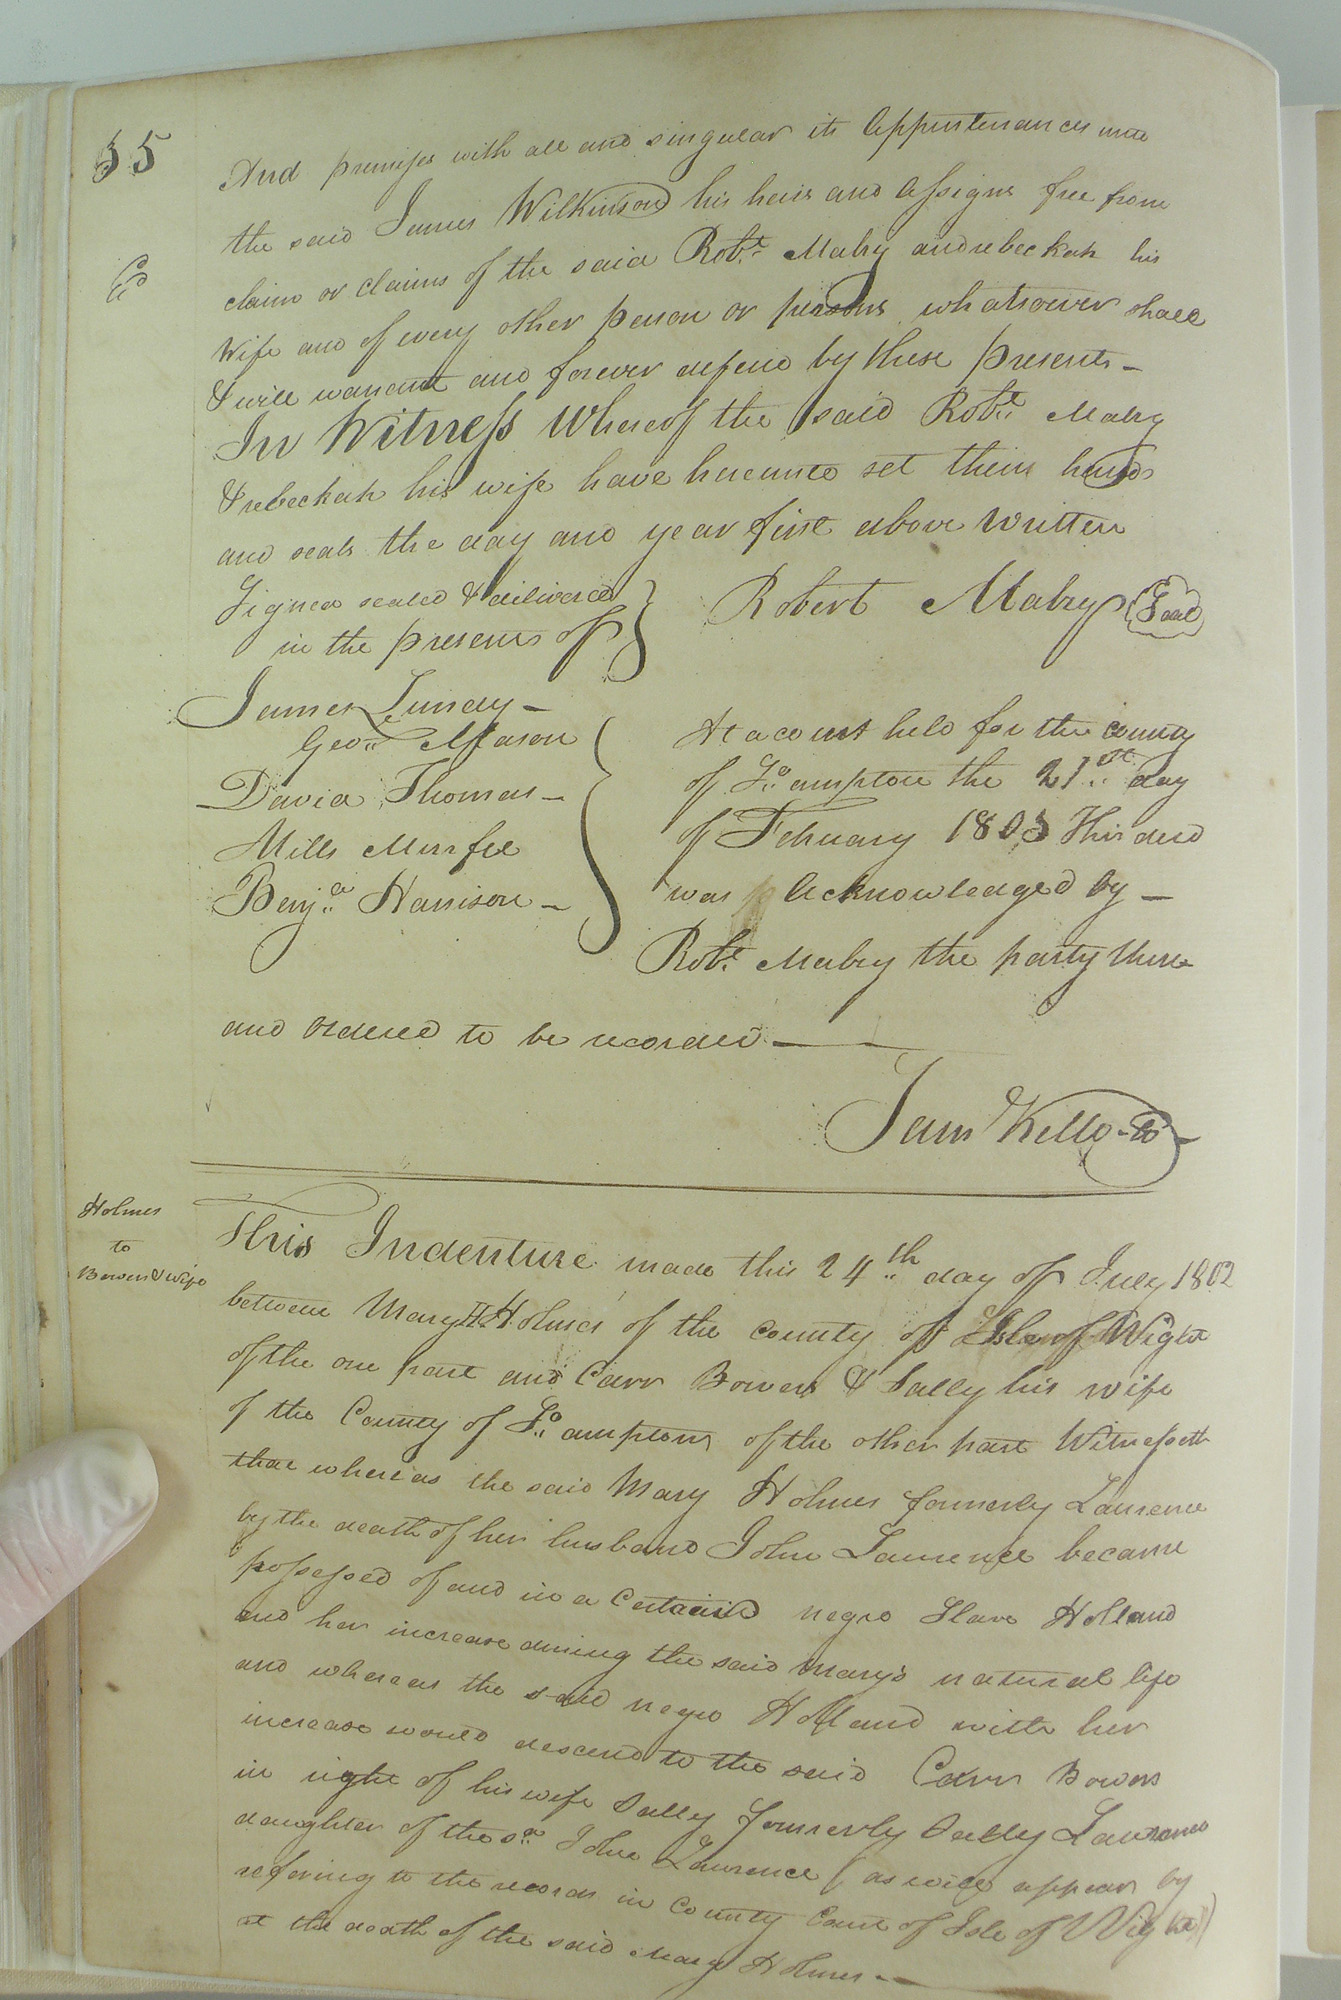 35
And premises with all and singular its Appurtenances unto
the said James Wilkinson his heirs and Assigns free from
claim or claims of the said Robt. Mabry and rebeckah his
Wife and of every other person or persons whatsoever shall
& will warrant and forever defend by these presents -
In Witness Whereof the said Robt. Mabry
& rebeckah his wife have hereunto set their hands
and seals the day and year first above Written
Signed sealed & delivered
in the presents of
Robert Mabry Seal
James Lundy -
Geo. Mason
David Thomas -
Mills Murfee
Benja. Harrison -
At a court held for the county
of So.ampton the 21st day
of February 1803 This deed
was Acknowledged by -
Robt. Mabry the party there
and ordered to be recorded -
Saml Kello
Holmes
to
Bowers & wife
This Indenture made this 24th day of July 1802
between Mary H. Holmes of the County of Isle of Wight
of the one part and Carr Bowers & Sally his wife
of the County of So.ampton of the other part Witnesseth
that whereas the said Mary Holmes formerly Laurence
by the death of her husband John Laurence became
possessed of and in a Certain negro Slave Holland
and her increase during the said Mary's natural life
and whereas the said negro Holland with her
increase would descend to the said Carr Bowers
in right of his wife Sally formerly Sally Laurence
daughter of the sd. John Laurence (as will appear by
refering to the records in County Court of Isle of Wight)
at the death of the said Mary Holmes -